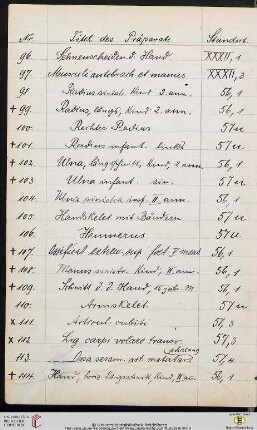 Nr. Titel des Präparats Standort.
96. Sehnenscheiden d. Hand XXXII, 1
97. Musculi antebrach. et manus XXXII, 3
98. Radius 2 ann. 56, 1
+ 99. Radius, längs, Kind 2 ann. 56, 1
100. Rechter Radius 57 u
+ 101. Radius infant. links 57 u
+ 102. Ulna, Längsschnitt, Kind, 2 ann. 56, 1
+ 103. Ulna infant. sin. 57 u
104. Ulna sinistra inf. II ann. 56, 1
105. Handskelet mit Bändern 57 u
106. Humerus 57 u
+ 107. Ossificat. extrem. sup. foet. V mens. 56, 1
+ 108. Manus sinistr. Kind, II ann. 56, 1
+ 109. Schnitt d. d. Hand, 16 jähr. M. 56, 1
110. Armskelet 57 u
x 111. Articul. cubiti 57, 3
x 112. Lig. carpi volare transv. 57, 3
113. Ossa sesam. art. metatars. 57, 4
+ 114. Hand, horiz. Längsschnitt, Kind, II ann. 56, 1
© Universitätsbibliothek Heidelberg